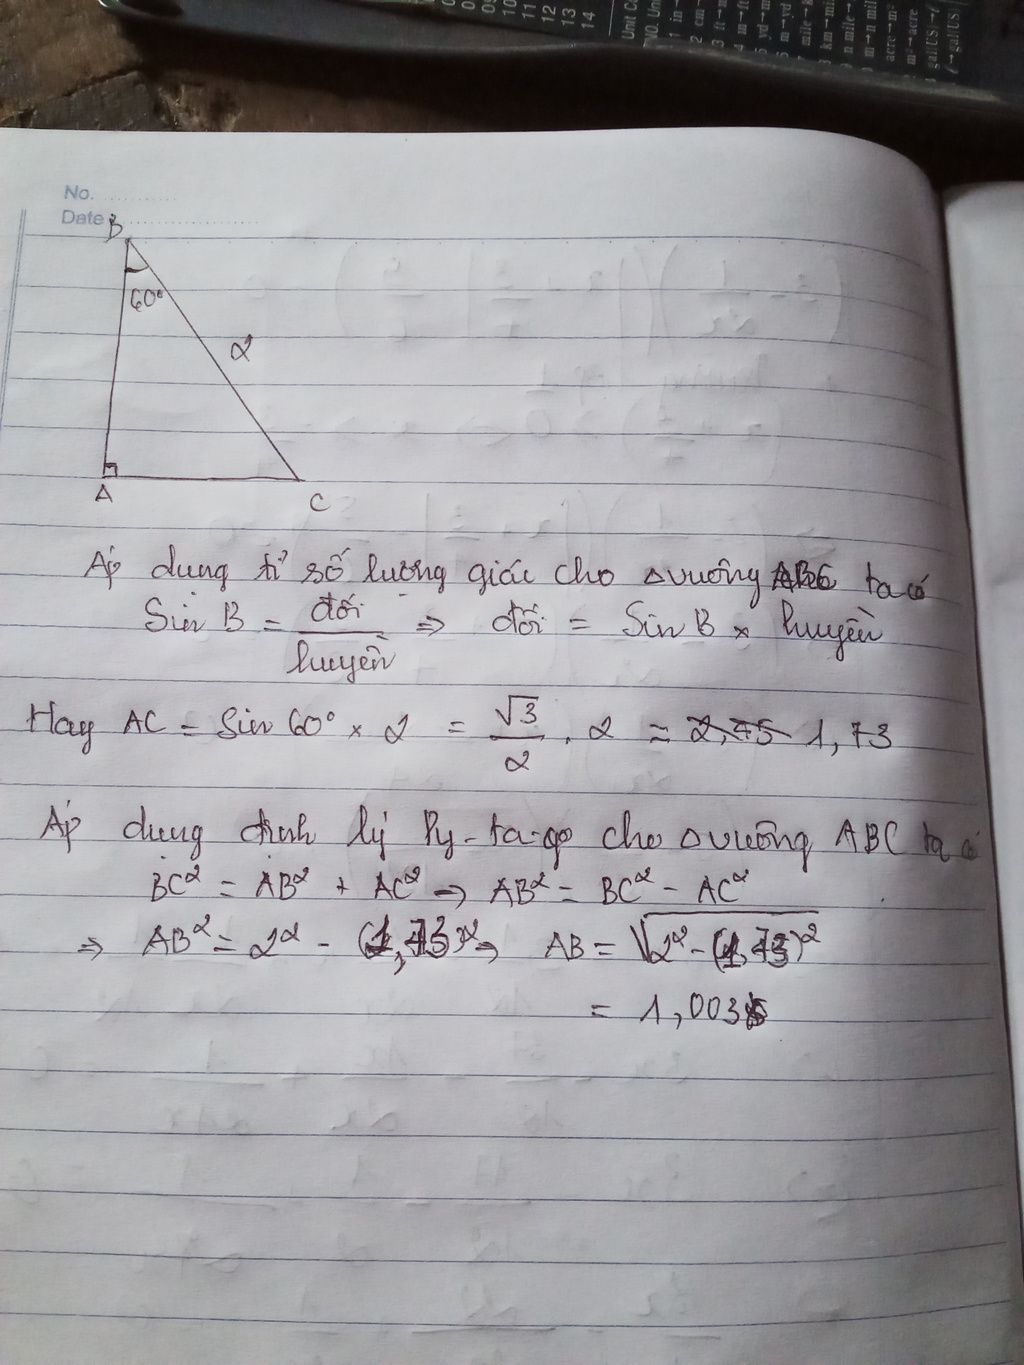 No.
Date
B
60°
2
A
C
Áp dụng tỉ số lượng giác cho Δvuông ABC ta có
Sin B = đối / huyền => đối = Sin B × huyền
Hay AC = Sin 60° × 2 = √3/2 . 2 = 2,75 1,73
Áp dụng định lý Py-ta-go cho Δvuông ABC ta có
BC² = AB² + AC² => AB² = BC² - AC²
=> AB² = 2² - (1,73)² => AB = √2² - (1,73)²
= 1,003